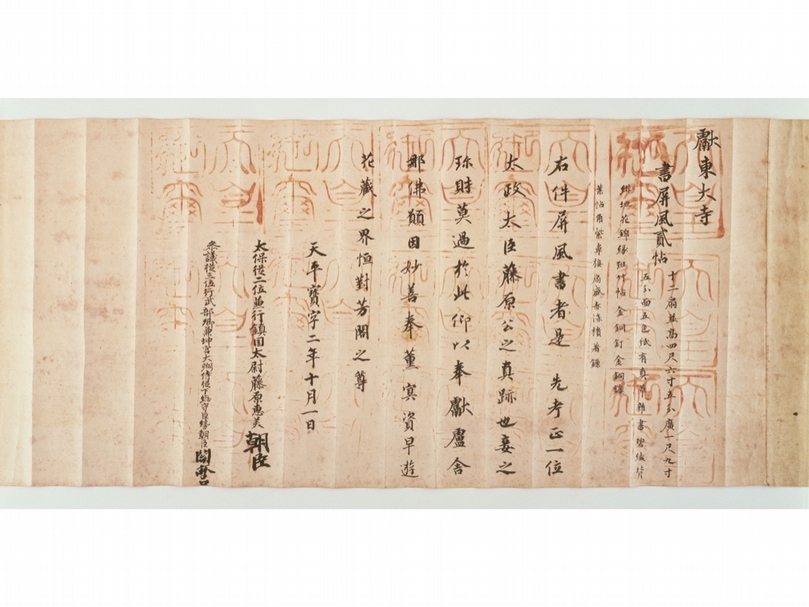 獻東大寺
書屏風貳帖
十二扇並高四尺六寸半分廣一尺九寸
五分面五色紙有真草雜書碧綾背
紺地花錦緣班竹帖金銅釘金銅
右件屏風書者是 先考正一位
太政太臣藤原公之真跡也妾之
珎財莫過於此仰以奉獻盧舍
那佛願因妙善奉薰冥資早遊
花藏之界恒對芳閣之尊
天平寶字二年十月一日
太保從二位兼行鎮國太尉藤原惠美朝臣
參議從三位行武部卿兼坤宮大弼侍從下総守巨勢朝臣關麻呂